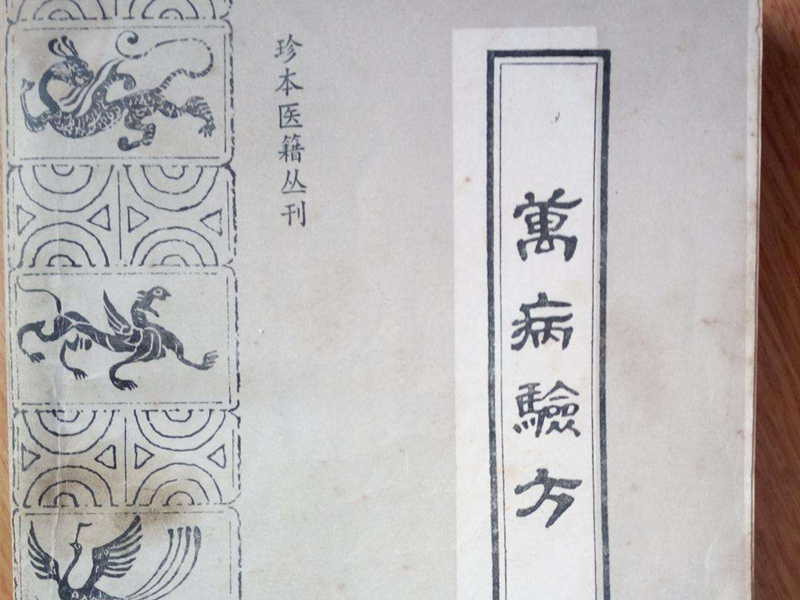 萬病驗方
珍本医籍丛刊